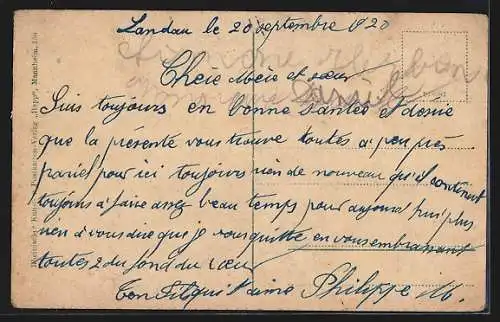 Landau le 20 septembre 1920
Cheie Meie et sœur
Suis toujours en bonne santée et desire
que la présente vous trouve toutes a peu près
pariel pour ici toujours rien de nouveau qu'il continent
toujours a faire assez beau temps pour aujourd'hui plus
rien a vous dire que je vous quitte en vous embrassant
toutes 2 du fond du cœur
Ton Fils qui t'aime Philippe M.
Postkarten-Verlag „Hepp", Mannheim.